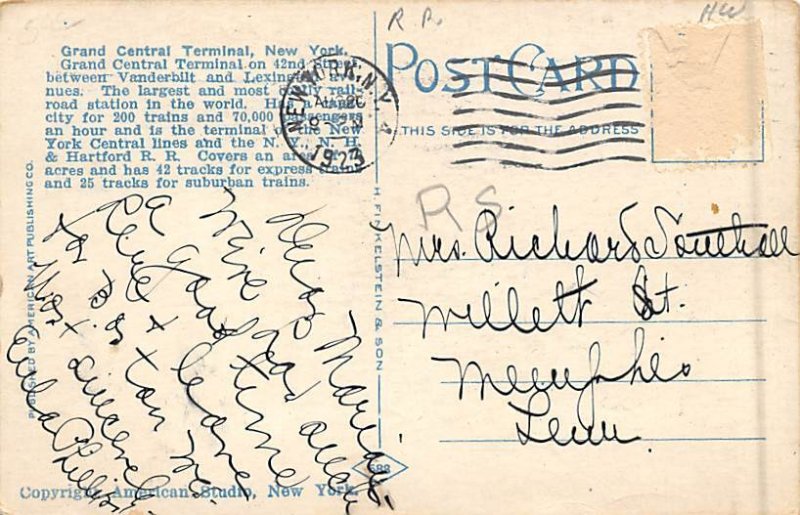 R R.
HW
Grand Central Terminal, New York.
Grand Central Terminal on 42nd Street
between Vanderbilt and Lexington
nues. The largest and most costly rail-
road station in the world. Has a capa-
city for 200 trains and 70,000 passengers
an hour and is the terminal of the New
York Central lines and the N. Y., N. H.
& Hartford R. R. Covers an area of
acres and has 42 tracks for express trains
and 25 tracks for suburban trains.
POST CARD
THIS SIDE IS FOR
NEW YORK, N.Y.
1923
RS
Mrs. Richard Southall
Willett St.
Memphis
Tenn.
Dear Marian,
a good time
here +
for Boston
Most sincerely
Phillips
PUBLISHED BY AMERICAN ART PUBLISHING CO.
H. FINKELSTEIN & SON
588
Copyright, American Studio, New York.